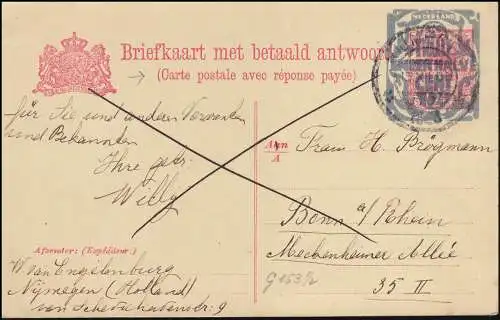 NEDERLAND
Briefkaart met betaald antwoord
(Carte postale avec réponse payée)
für Sie und anderen Verwandten
und Bekannten
Ihre geb.
Willy
Aan
A
Frau H. Brögmann
Bonn a/ Rhein
Meckenheimer Allée
35 II
Afzender: (Expéditeur:)
W. van Engelenburg
Nijmegen (Holland)
van 9
G 153/2